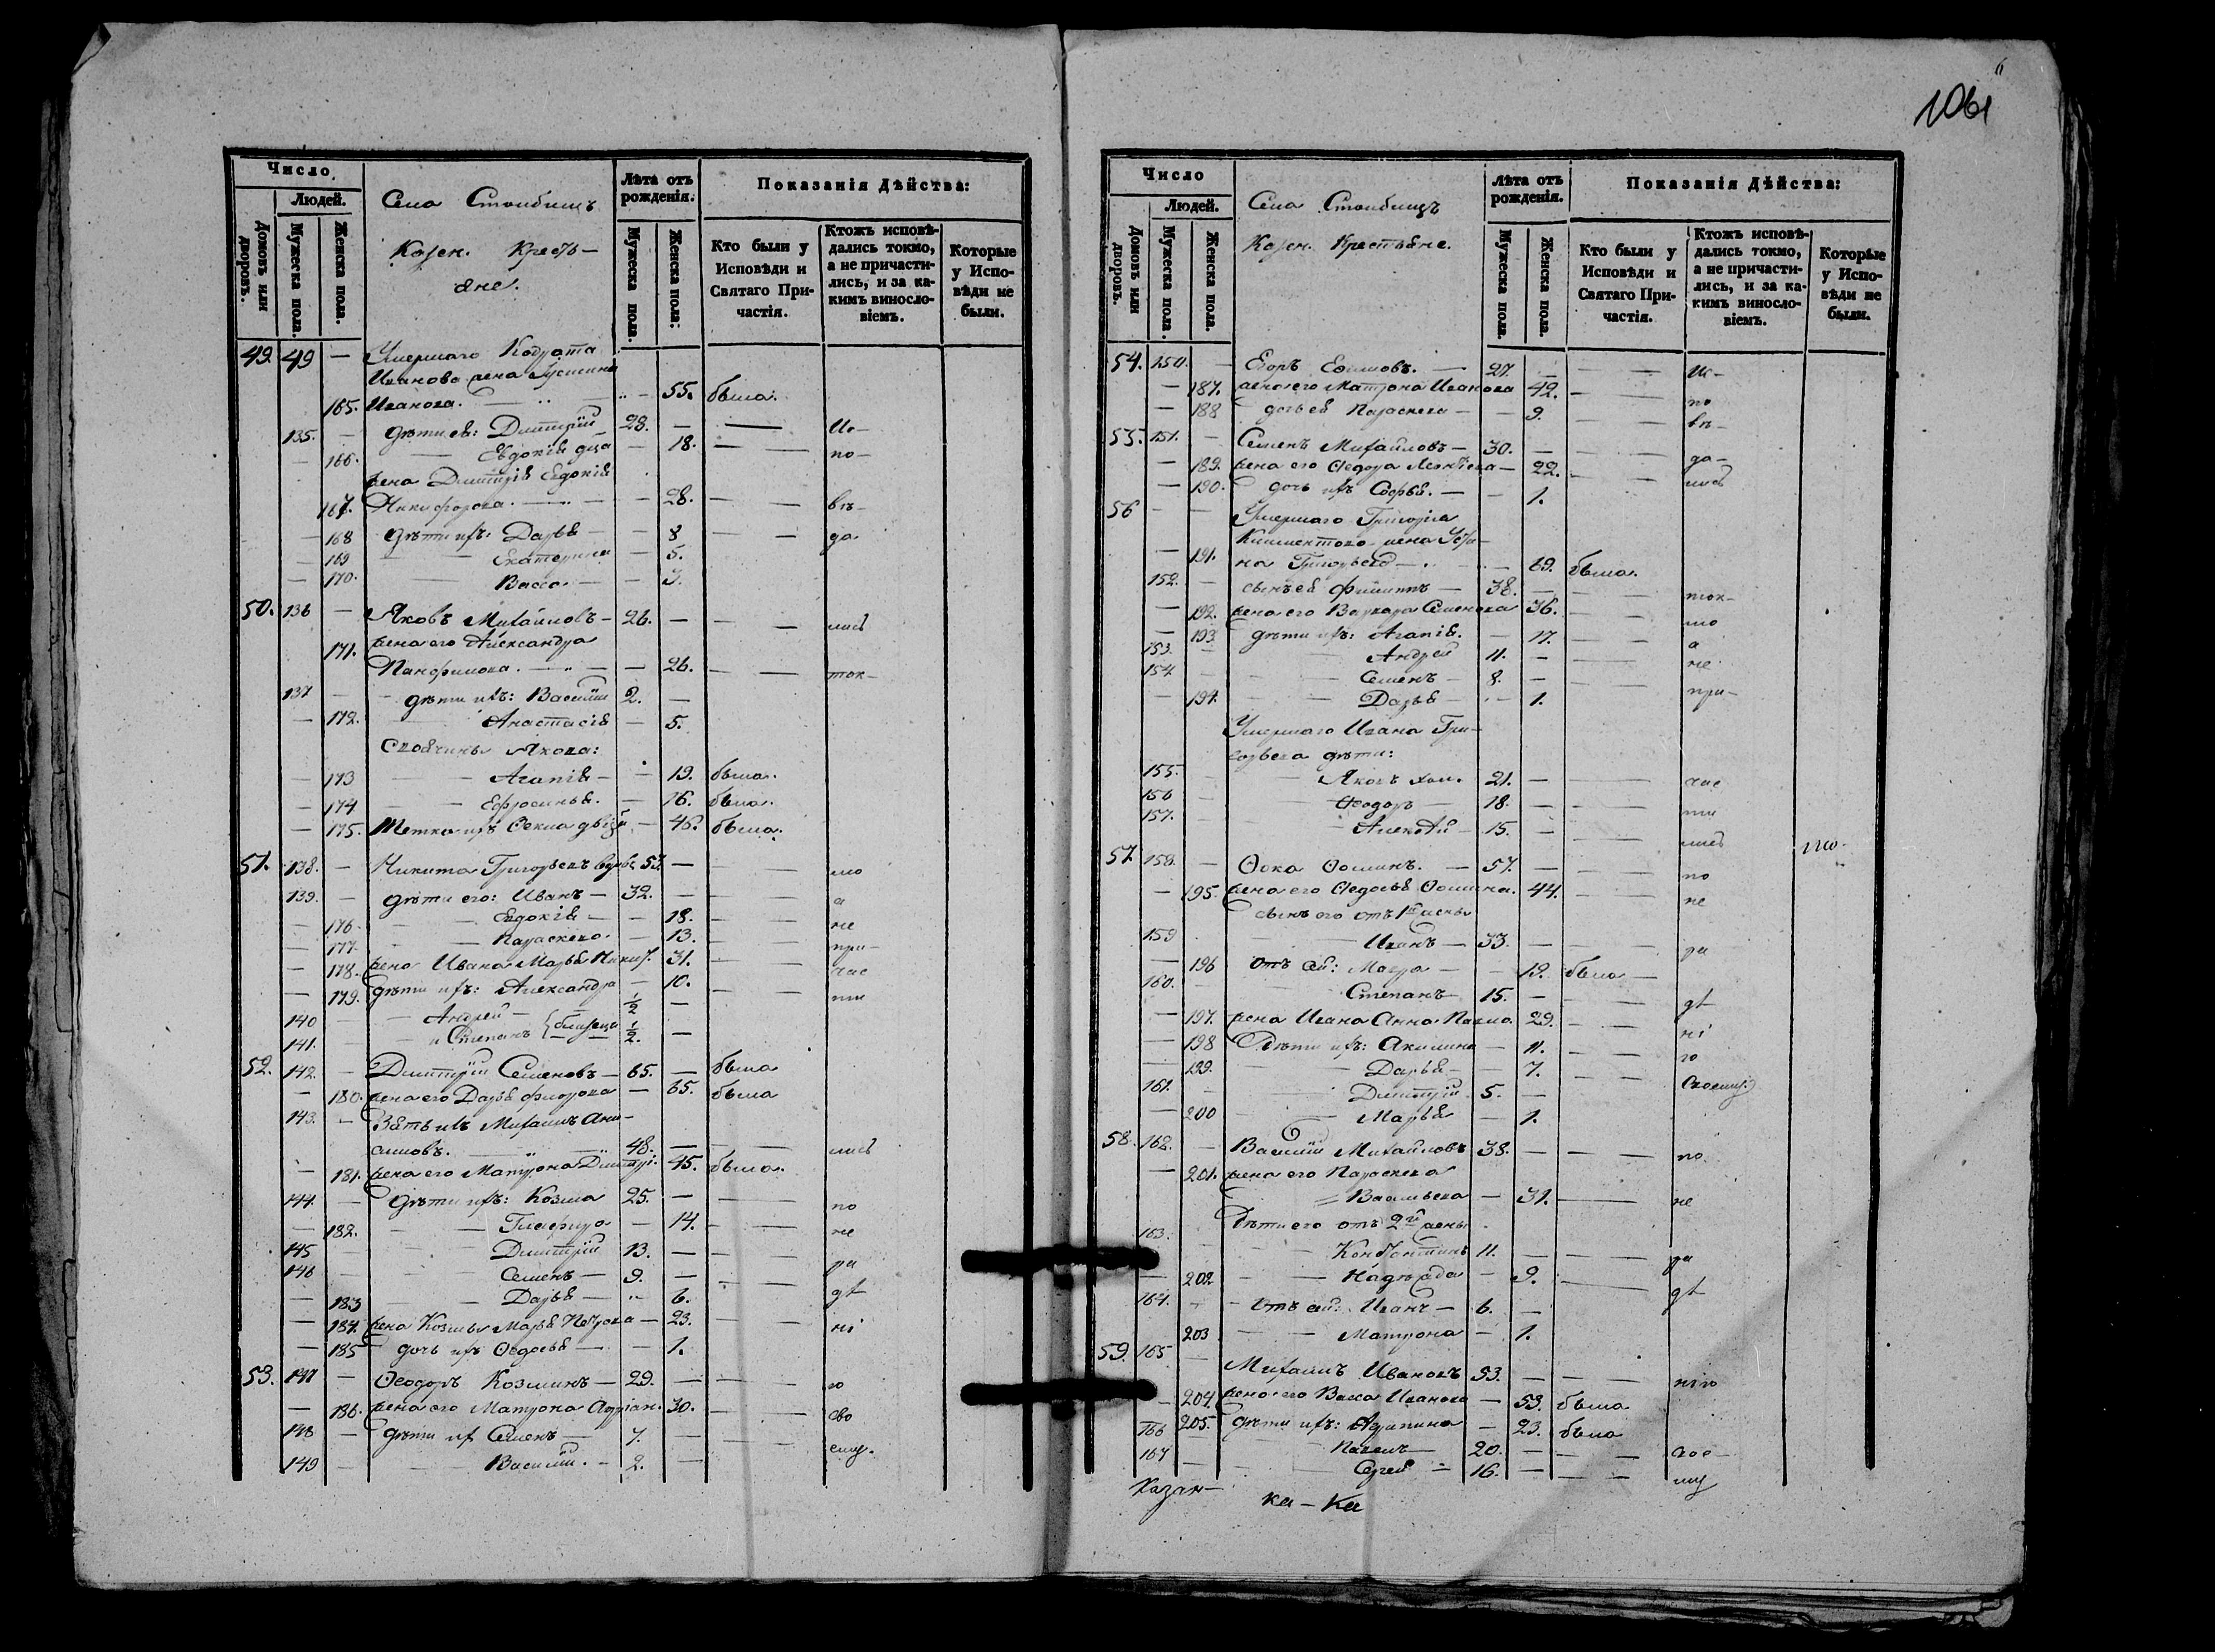 1061
Число
Людей.
Домовъ или дворовъ.
Мужеска пола.
Женска пола.
Села Столбищъ
Казен. Кресть-
яне.
Лѣта отъ рожденія.
Мужеска пола.
Женска пола:
Показанія Дѣйства:
Кто были у Исповѣди и Святаго Причастія.
Ктожъ исповѣдались токмо, а не причастились, и за какимъ винословіемъ.
Которые у Исповѣди не были.
49. 49 — Умершаго Кодрата
Иванова жена Устинья
165. Иванова. — 55. была.
135. — дѣти ея: Дмитрій 28. — — Ис-
— 166. — Евдокія — 18. — по-
жена Димитрія Евдокія
167. Никифорова. — 28. — — вѣ-
— 168 дѣти ихъ: Дарья — — 8 — — да-
— 169 — Екатерина — 5.
— 170. — Васса. — — 3.
50. 136 — Яковъ Михайловъ — 26. — — лись
171. жена его Александра
Панфилова. — — 26. — — ток-
137 — — дѣти ихъ: Василій 2. —
— 172. — Анастасія — 5.
Своячины Якова:
— 173 — Агапія — — 19. была.
— 174 — Ефросинья. — 16. была.
— 175. Тетка ихъ Фекла — 46. была.
51. 138. — Никита Григорьевъ вдовъ 53. — — мо
139. — дѣти его: Иванъ — 32. — — а
— 176. — Евдокія — — 18. — не
— 177. — Параскева. — 13. — при-
— 178. жена Ивана Марья Никит. 31. — час
— 179. дѣти ихъ: Александра — 10. — ти
140 — — Андрей — 1/2 —
141. — — и Степанъ близнецы 1/2. —
52. 142. — Димитрій Семеновъ — 65. — была
— 180. жена его Дарья Фирсова — 65. была
143. — Зять ихъ Михаилъ Ани-
симовъ. — 48. — — лись
— 181. жена его Матрона Димитрі. 45. была.
144. — Дѣти ихъ: Козма 25. — — по
— 182. — Глафира — 14. — не
145 — — Димитрій 13. — — ра
146 — — Семенъ — 9. — — дѣ
— 183 — Дарья — 6. —
— 184. жена Козмы Марья Петрова — 23. — — ні
— 185 дочь ихъ Ѳедосья — — 1.
53. 147 — Ѳеодоръ Козминъ — 29. — — ю
— 186. жена его Матрона Адріан. 30. — — сво
148 — дѣти их Семенъ — 7. — —
149 — — Василій. — 2. — ему.
Число
Людей.
Домовъ или дворовъ.
Мужеска пола
Женска пола.
Села Столбищъ
Казен. Крестьяне.
Лѣта отъ рожденія.
Мужеска пола.
Женска пола.
Показанія Дѣйства:
Кто были у Исповѣди и Святаго Причастія.
Ктожъ исповѣдались токмо, а не причастились, и за какимъ винословіемъ.
Которые у Исповѣди не были.
54. 150. — Егоръ Ефимовъ. — 27. — — Ис-
— 187. жена его Матрона Иванова 42. — — по
— 188 дочь ея Параскева — — 9. — — вѣ-
55. 151. — Семенъ Михайловъ — 30. — — да-
— 189. жена его Ѳедора — 22. — — лись
— 190. дочь ихъ Софья. — — 1.
56 — — Умершаго Григорія
Климентова жена Усти-
— 191. на Григорьева — 69. была.
152. — сынъ ея Филиппъ — 38. — — ток-
— 192. жена его Варвара Семенова 36. — — мо
— 193 дѣти ихъ: Агапія. — 17. — а
153. — — Андрей 11. — — не
154 — — Семенъ — 8. — —
— 194. — Дарья — — 1. при-
Умершаго Ивана Гри-
горьева дѣти:
155. — — Яковъ хол. 21. — — час
156 — — Ѳеодоръ — 18. — — ти
157. — — Алексѣй — 15. — — лись
57 158. — Ѳока Ѳоминъ. — 57. — — по
— 195. жена его Ѳедосья Ѳомина. 44. — — не
сынъ его отъ 1й жены
159 — Иванъ — 33. — — ра
— 196 отъ сей: Мавра — — 19. была —
160. — Степанъ — 15. — — дѣ
— 197. жена Ивана Анна Павло. 29. — — ні
— 198 Дѣти ихъ: Акилина — 11. — — ю
— 199. — Дарья — — 7. — — своему
161. — Димитрій 5. —
— 200 — Марья — 1.
58. 162. — Василій Михайловъ 38. — — по
— 201. жена его Параскева
Васильева — 31. — не
Дѣти его отъ 2й жены
163. — Константинъ 11. — — ра
— 202 — Надежда — 9. — дѣ
164. — отъ сей: Иванъ — 6. —
203 — Матрона — 1.
59. 165 — Михаилъ Ивановъ 53. — — нію
— 204. жена его Васса Иванова — 53. была
205. дѣти ихъ: Агрипина — 23. была
166 — Павелъ — 20. — — сво-
167 — Сергей — 16. — — ему
Казан-
ка — Ка